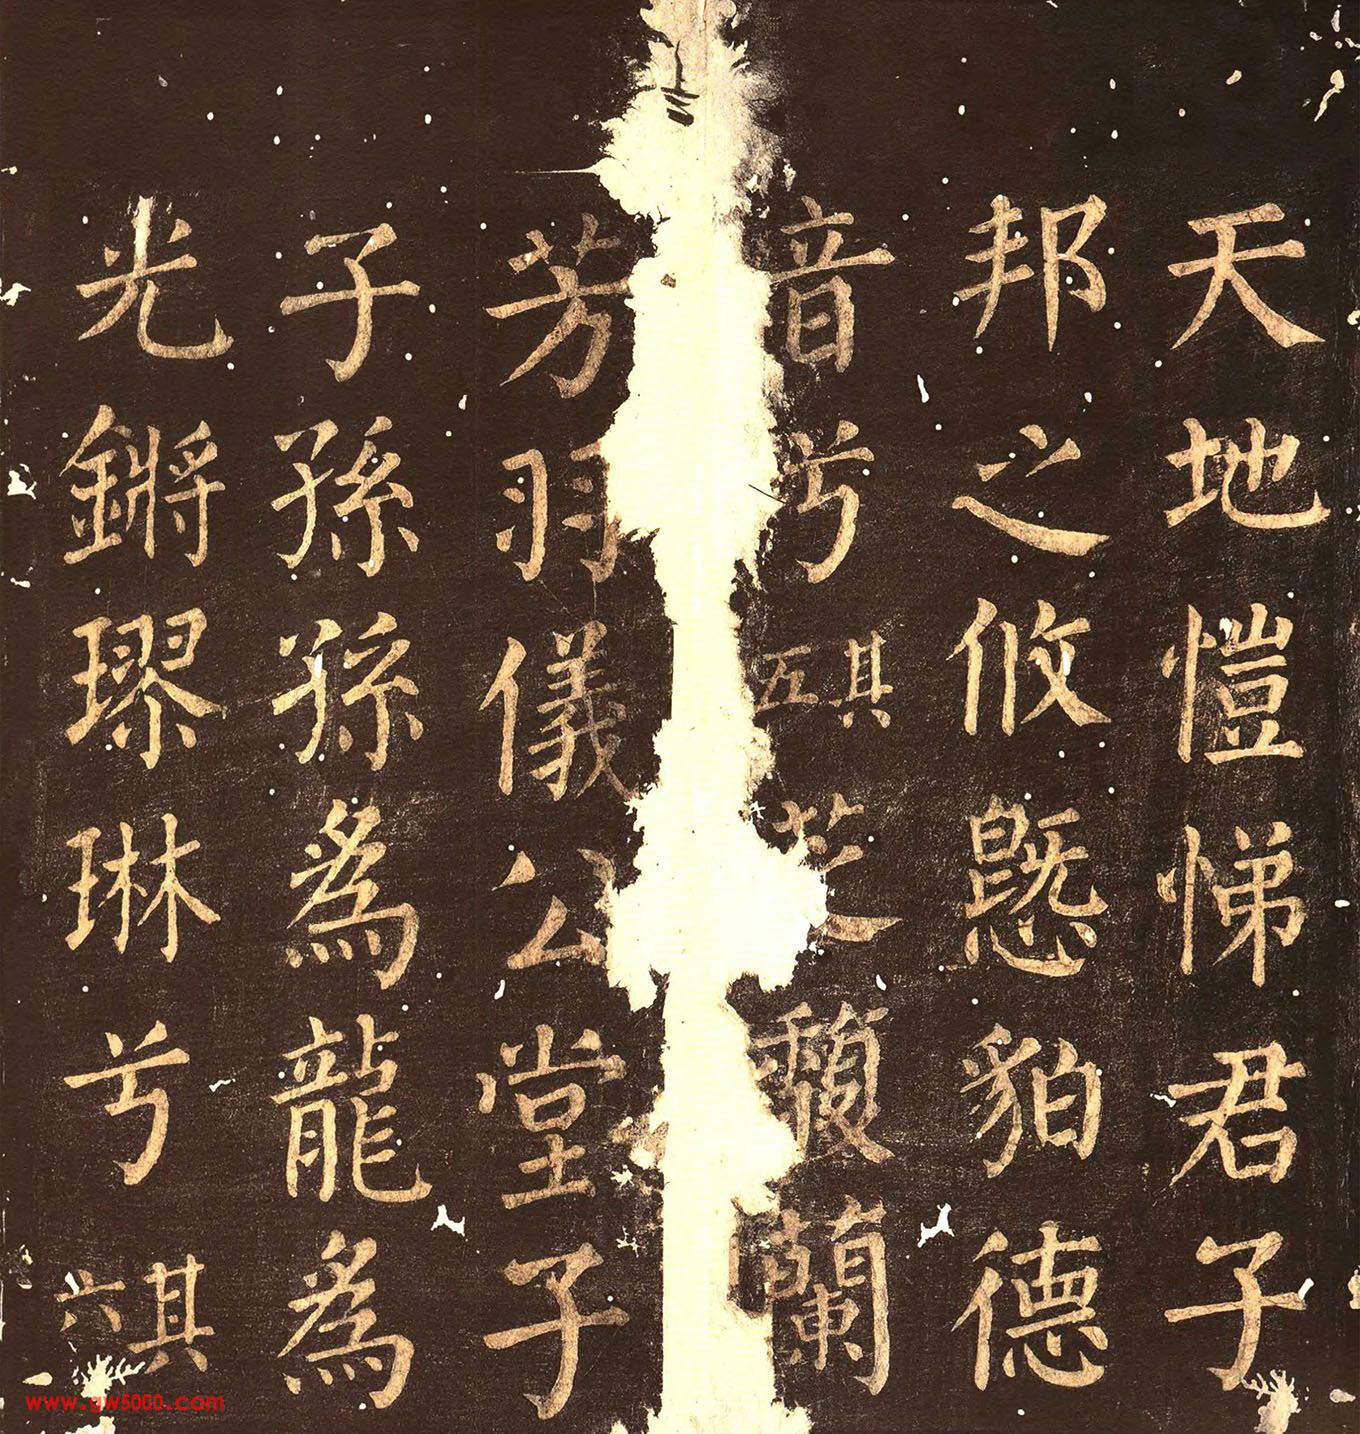 天地愷悌君子
邦之攸貊德
音兮其五芝馥蘭
芳羽儀公堂子
子孫孫爲龍爲
光鏘璆琳兮其六
www.gw5000.com